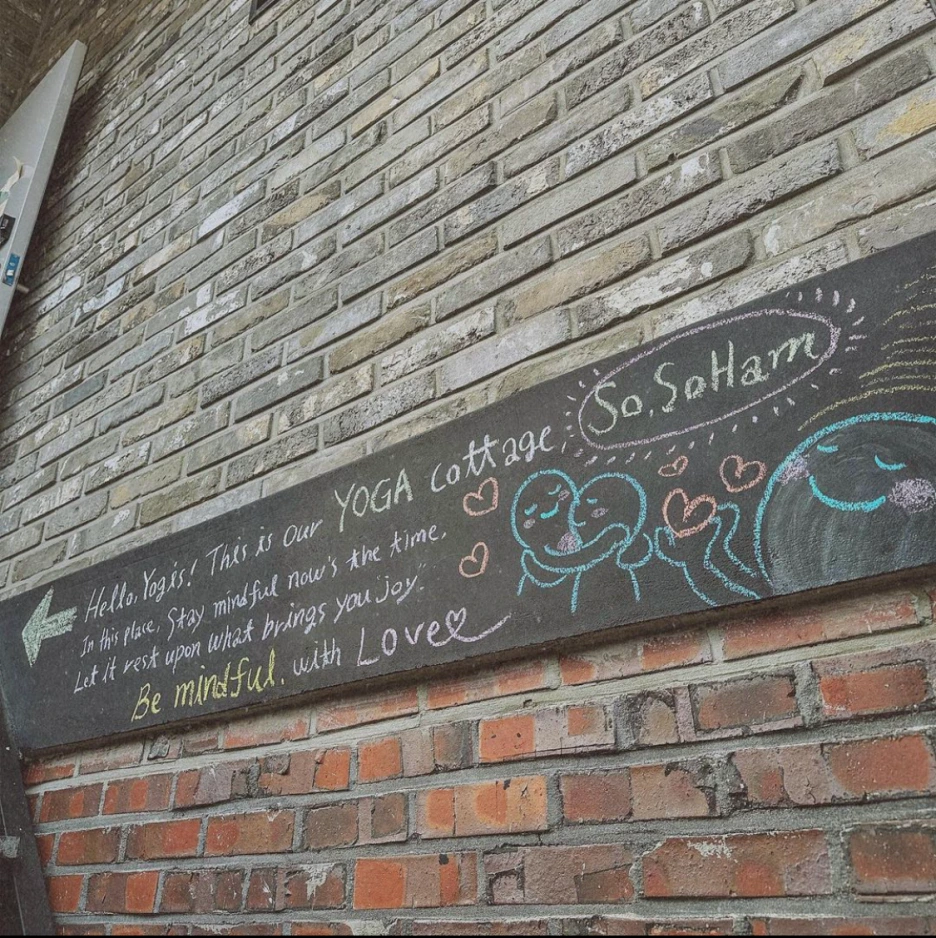 Hello, Yogis! This is our YOGA cottage, So, SoHam
In this place, Stay mindful now's the time.
Let it rest upon what brings you "joy".
Be mindful. with Love